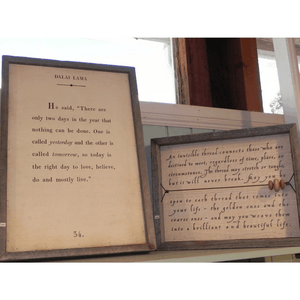 DALAI LAMA
He said, "There are
only two days in the year that
nothing can be done. One is
called yesterday and the other is
called tomorrow, so today is
the right day to love, believe,
do and mostly live."
54.
An invisible thread connects those who are
destined to meet, regardless of time, place, or
circumstance. The thread may stretch or tangle,
but it will never break. May you be
open to each thread that comes into
your life - the golden ones and the
coarse ones - and may you weave them
into a brilliant and beautiful life.